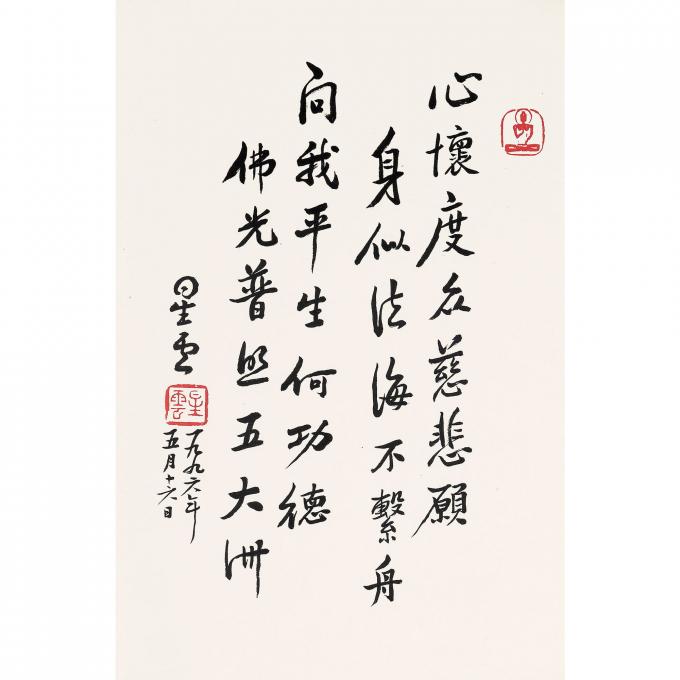 心懷度众慈悲願
身似法海不繫舟
问我平生何功德
佛光普照五大洲
星雲
星雲
一九九六年
五月十六日